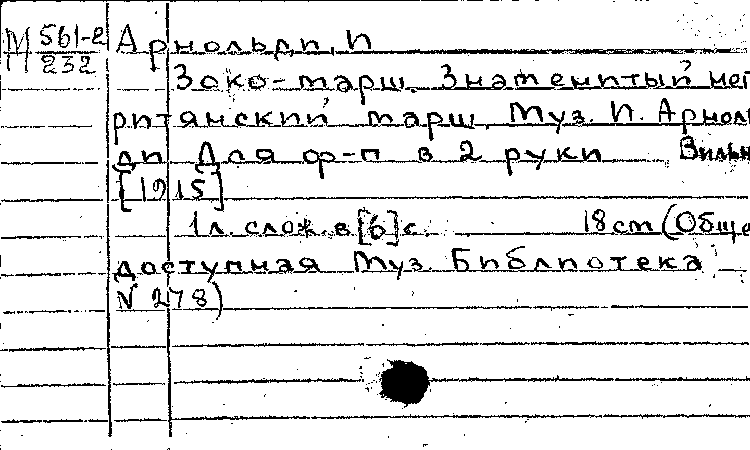 М 561-2
232
Арнольди, П
Зоко-марш. Знаменитый нег
ритянский марш. Муз. П. Арноль
ди Для ф-п в 2 руки Вильн
[1915]
1 л. слож. в [6] с. 18 cm (Обще
доступная Муз. Библиотека
N 278)